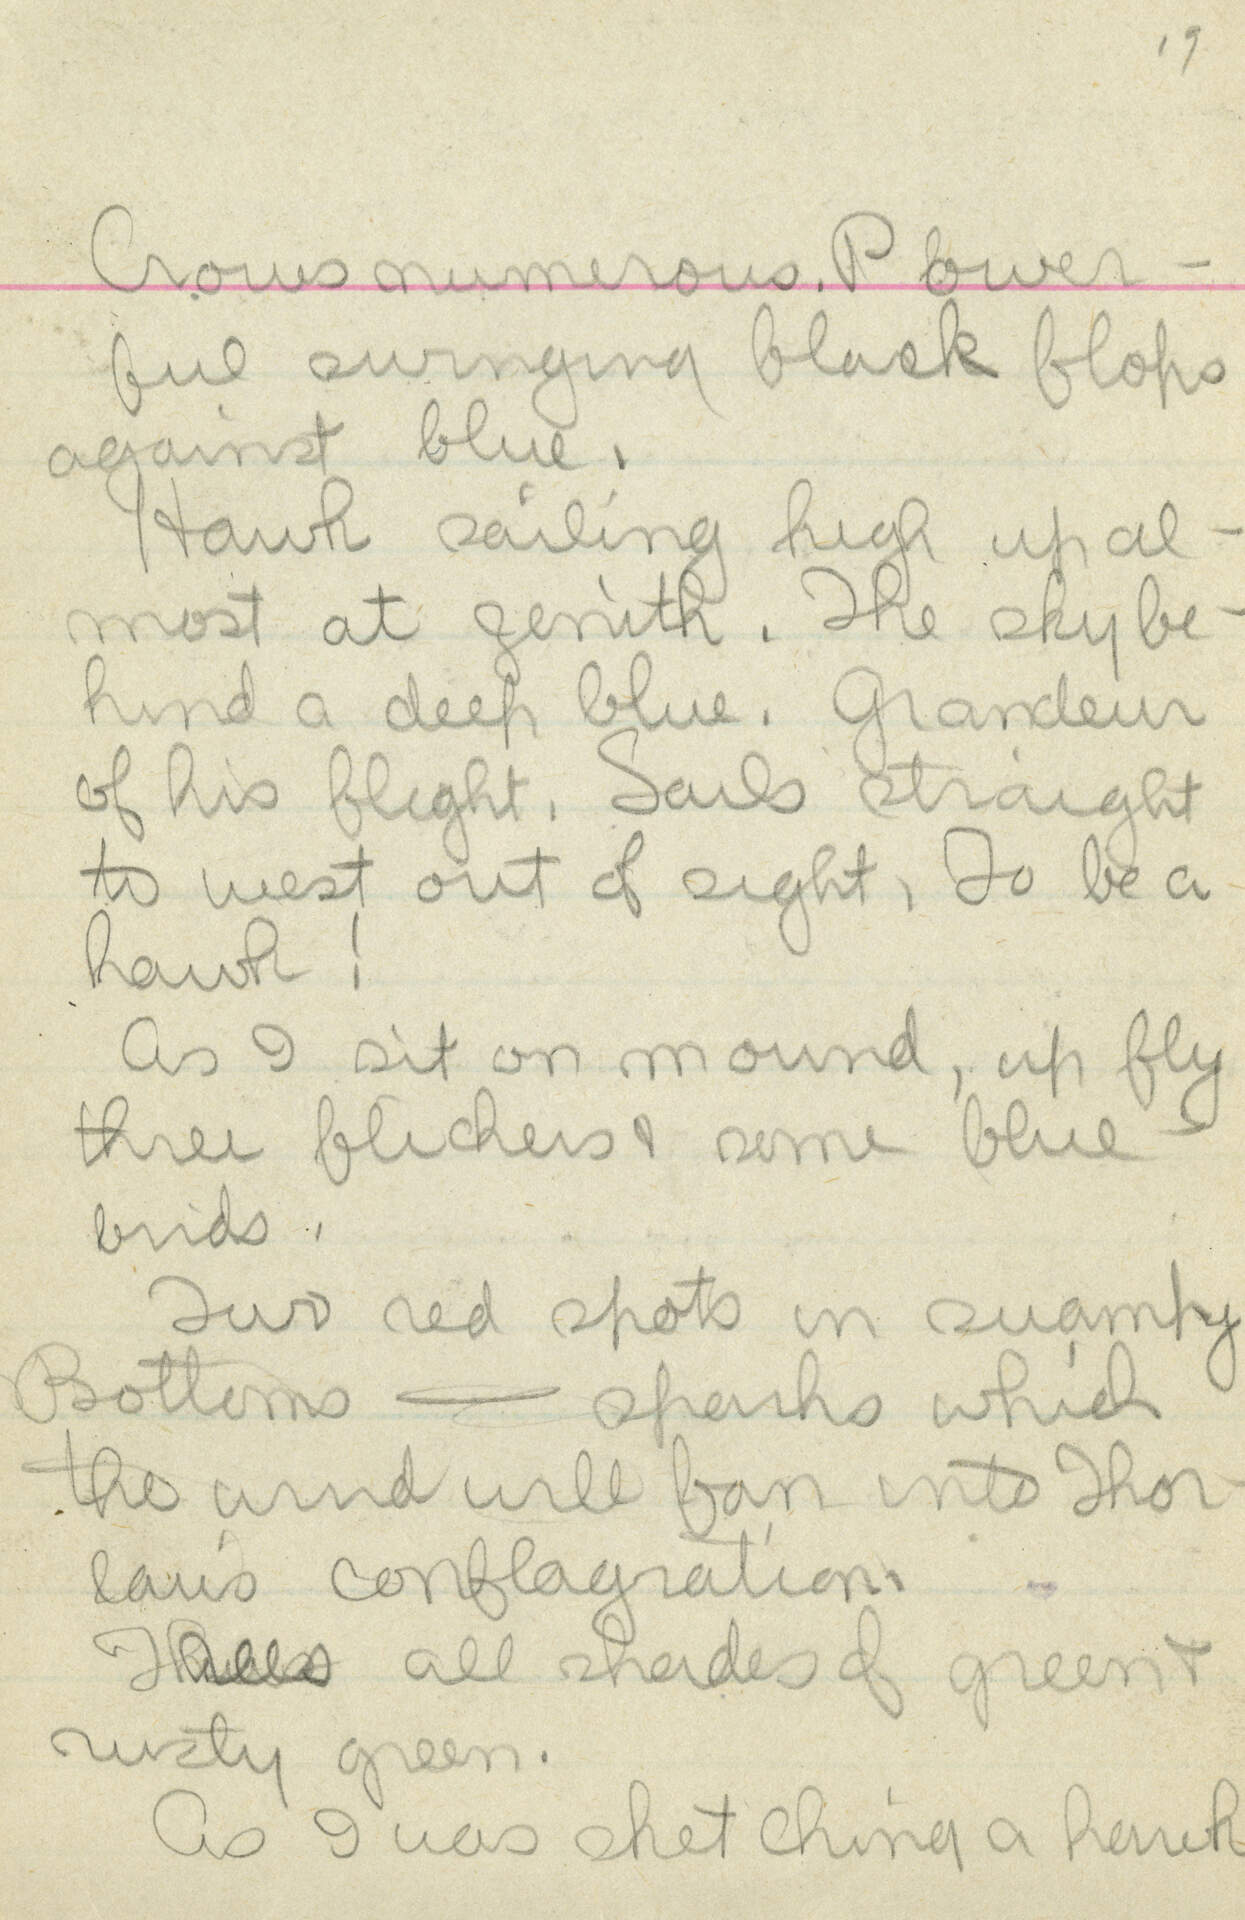 19
Crows numerous. Power-
ful swinging black flops
against blue.
Hawk sailing high up al-
most at zenith. The sky be-
hind a deep blue. Grandeur
of his flight. Sails straight
to west out of sight. To be a
hawk!
As I sit on mound, up fly
three flickers & some blue-
birds.
Two red spots in swampy
Bottoms — sparks which
the wind will fan into Thor-
eau's conflagration.
Trees all shades of green &
rusty green.
As I was sketching a hawk